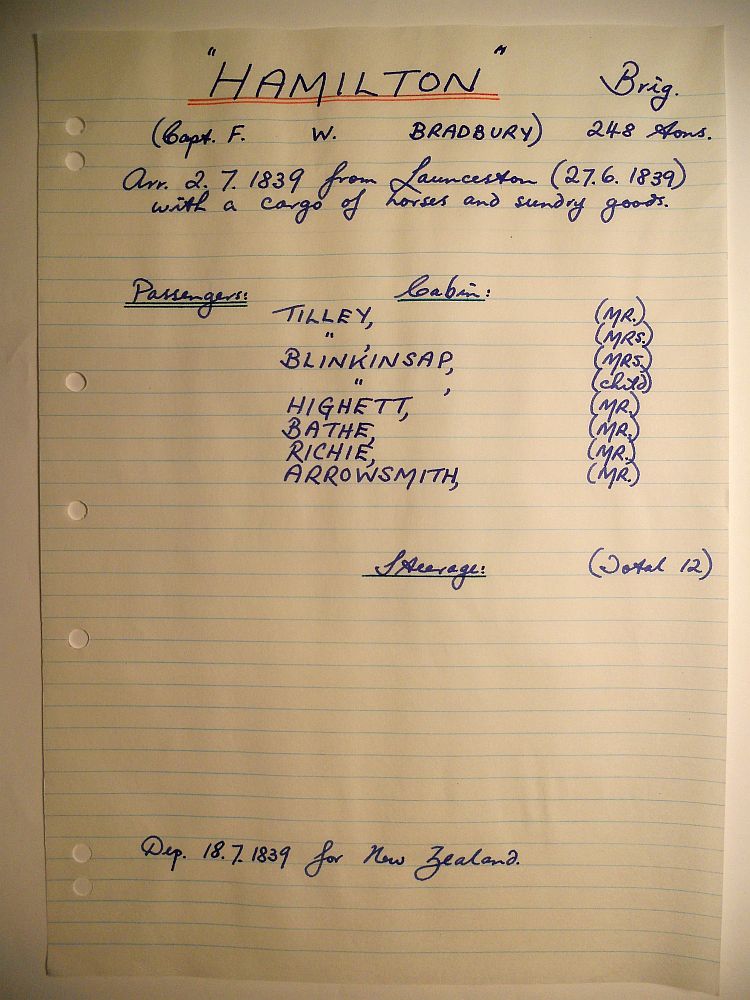 "HAMILTON" Brig.
(Capt. F. W. BRADBURY) 248 tons.
Arr. 2.7.1839 from Launceston (27.6.1839)
with a cargo of horses and sundry goods.
Passengers: Cabin:
TILLEY, (MR.)
" , (MRS.)
BLINKINSAP, (MRS.)
" , (child)
HIGHETT, (MR.)
BATHE, (MR.)
RICHIE, (MR.)
ARROWSMITH, (MR.)
Steerage: (Total 12)
Dep. 18.7.1839 for New Zealand.